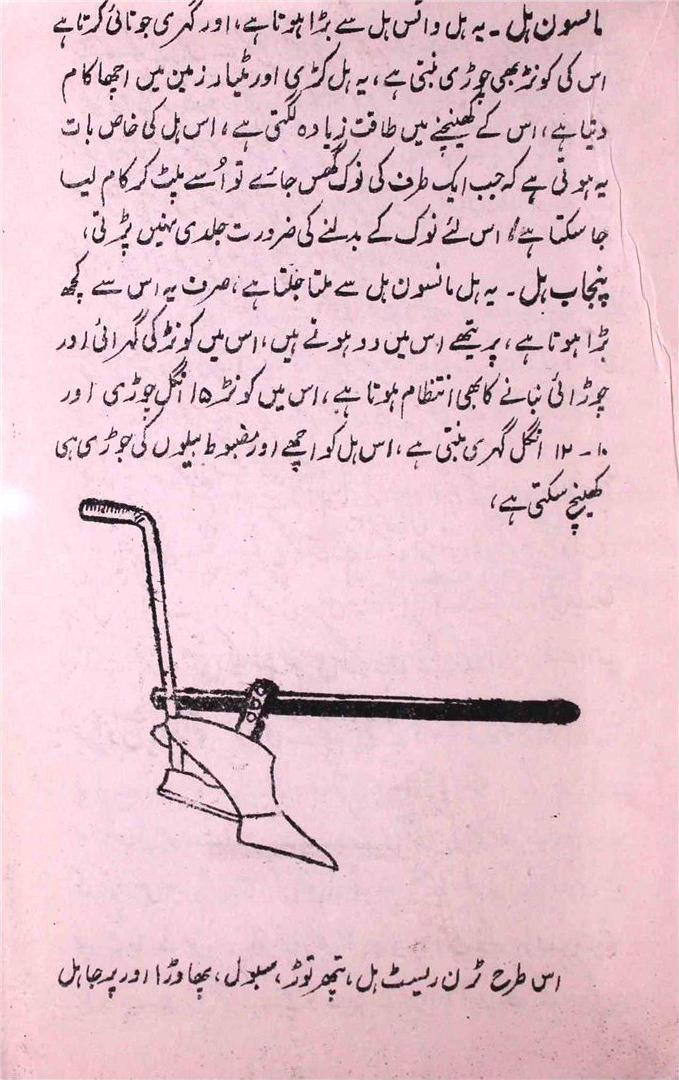 مانسون ہل ۔ یہ ہل واٹس ہل سے بڑا ہوتا ہے، اور گہری جوتائی کرتا ہے
اس کی کونڑ بھی چوڑی بنتی ہے، یہ ہل کڑی اور مٹیار زمین میں اچھا کام
دیتا ہے، اس کے کھینچنے میں طاقت زیادہ لگتی ہے، اس ہل کی خاص بات
یہ ہوتی ہے کہ جب ایک طرف کی نوک گھس جائے تو اُسے پلٹ کر کام لیا
جا سکتا ہے، اس لئے نوک کے بدلنے کی ضرورت جلدی نہیں پڑتی،
پنجاب ہل ۔ یہ ہل مانسون ہل سے ملتا جلتا ہے، صرف یہ اس سے کچھ
بڑا ہوتا ہے، پر ہتھے اس میں دو ہوتے ہیں، اس میں کونڑ کی گہرائی اور
چوڑائی بنانے کا بھی انتظام ہوتا ہے، اس میں کونڑ ۱۵ انگل چوڑی اور
۱۰ ۔ ۱۲ انگل گہری بنتی ہے، اس ہل کو اچھے اور مضبوط بیلوں کی جوڑی ہی
کھینچ سکتی ہے،
اس طرح ٹرن ریسٹ ہل، پتھر توڑ، سبول، پھاوڑا اور پرجا ہل